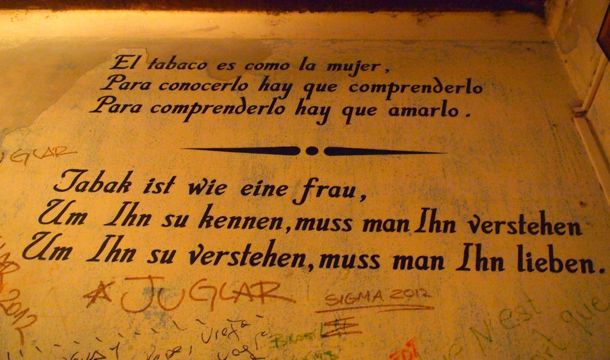 El tabaco es como la mujer,
Para conocerlo hay que comprenderlo
Para comprenderlo hay que amarlo.
Tabak ist wie eine frau,
Um Ihn su kennen, muss man Ihn verstehen
Um Ihn su verstehen, muss man Ihn lieben.
JUGLAR
JUGLAR
SIGMA 2012
2012
N'est
que